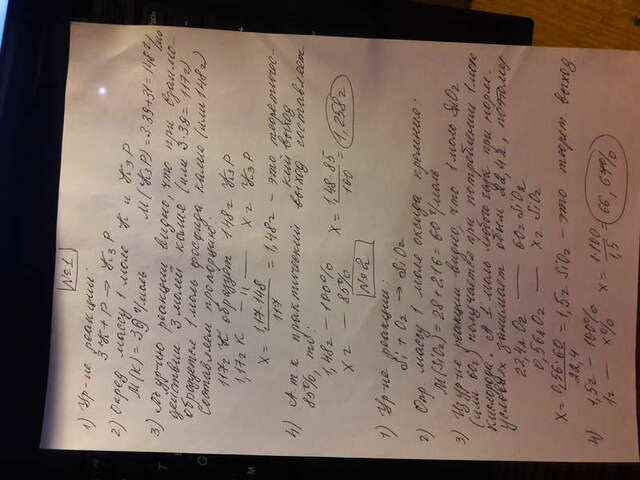 №1
1) Ур-ие реакции:
3K + P → K₃P
2) Опред массу 1 моля K и K₃P
M(K) = 39 г/моль M(K₃P) = 3·39+31 = 148 г/мо
3) Из ур-ию реакции видно, что при взаимо-
действии 3 молей калия (или 3·39 = 117г)
образуется 1 моль фосфида калия (или 148г)
Составляем пропорцию:
117г K образует 148г K₃P
1,17г K — " — x г K₃P
x = 1,17·148 / 117 = 1,48г - это теоретичес-
кий выход
4) А т.к практический выход составляет
85%, то:
1,48г — 100%
x г — 85%
x = 1,48·85 / 100 = 1,258г
№2
1) Ур-ие реакции:
Si + O₂ → SiO₂
2) Опр. массу 1 моля оксида кремния:
M(SiO₂) = 28 + 2·16 = 60 г/моль
3) Из ур-ие реакции видно, что 1 моль SiO₂
(или 60г) получается при потреблении 1 моля
кислорода. А 1 моль любого газа при норм.
условиях занимает объем 22,4л, поэтому
22,4л O₂ — 60г SiO₂
0,56л O₂ — x г SiO₂
x = 0,56·60 / 22,4 = 1,5г SiO₂ - это теорет. выход
4) 1,5г — 100%
1г — x%
x = 1·100 / 1,5 = 66,67%